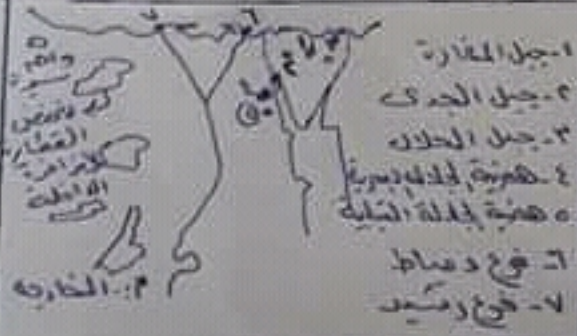 ١- جبل المغارة
٢- جبل الجدى
٣- جبل الحلال
٤- هضبة الجلالة البحرية
٥ هضبة الجلالة القبلية
٦- فرع دمياط
٧- فرع رشيد
واحة
سيوة
منخفض
القطارة
الفرافرة
الداخلة
م. الخارجة
٧
٦